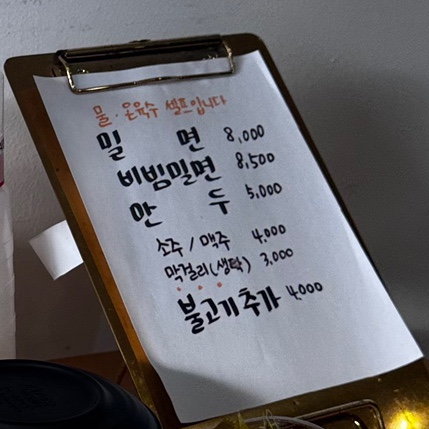 물·온육수 셀프입니다
밀 면 8,000
비빔밀면 8,500
만 두 5,000
소주 / 맥주 4,000
막걸리(생탁) 3,000
불고기 추가 4,000